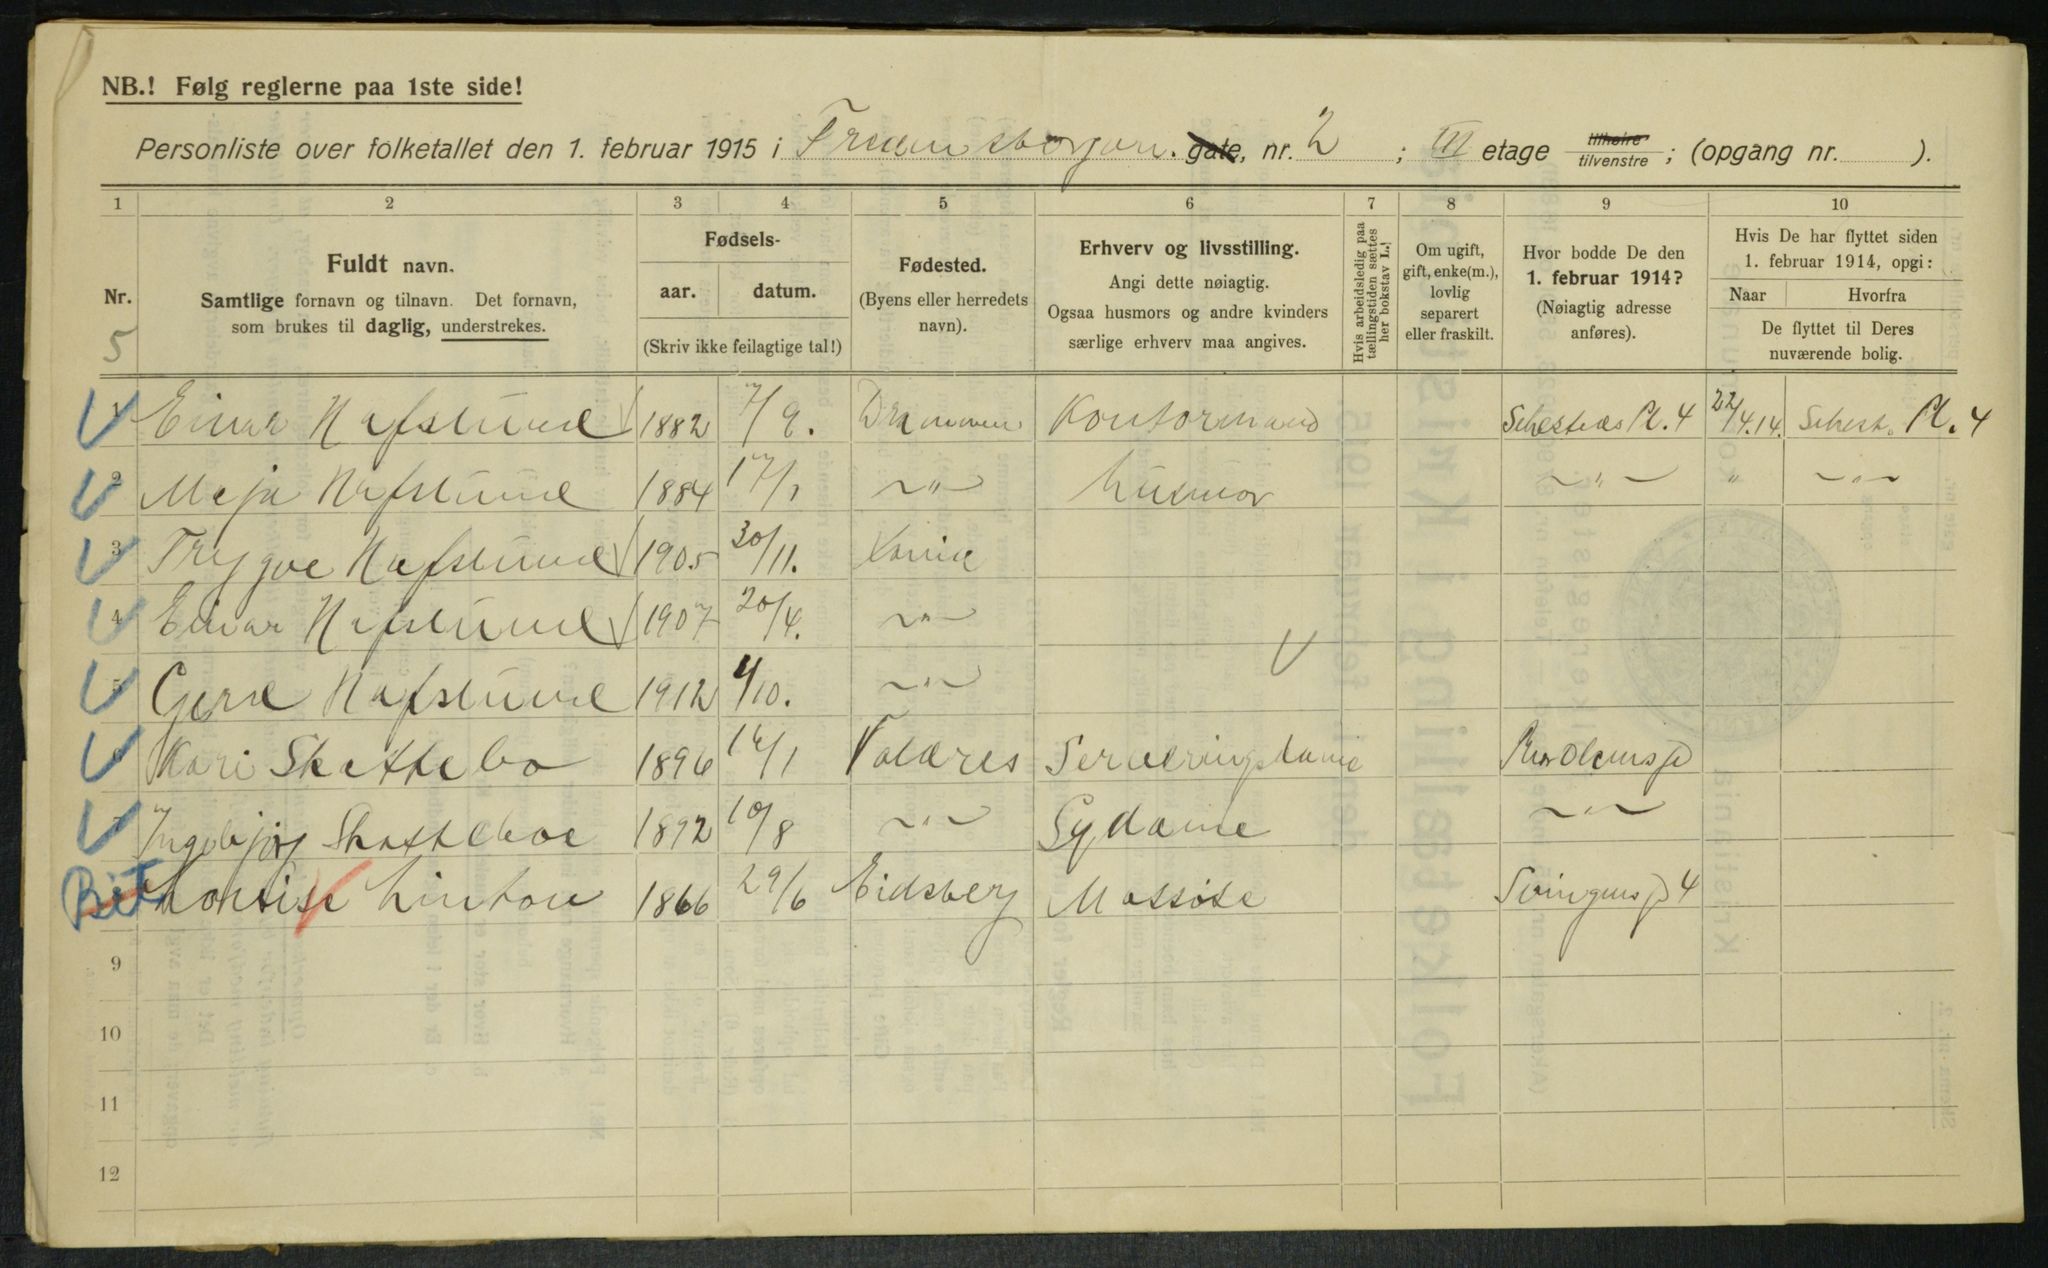 NB.! Følg reglerne paa 1ste side!
Personliste over folketallet den 1. februar 1915 i gate, nr. 2 ; III etage tilhøire tilvenstre ; (opgang nr. ).
1 2 3 4 5 6 7 8 9 10
Nr.
5
Fuldt navn.
Samtlige fornavn og tilnavn. Det fornavn,
som brukes til daglig, understrekes.
Fødsels-
aar. datum.
(Skriv ikke feilagtige tal!)
Fødested.
(Byens eller herredets
navn).
Erhverv og livsstilling.
Angi dette nøiagtig.
Ogsaa husmors og andre kvinders
særlige erhverv maa angives.
Hvis arbeidsledig paa
tællingstiden sættes
her bokstav L.!
Om ugift,
gift, enke(m.),
lovlig
separert
eller fraskilt.
Hvor bodde De den
1. februar 1914?
(Nøiagtig adresse
anføres).
Hvis De har flyttet siden
1. februar 1914, opgi:
Naar Hvorfra
De flyttet til Deres
nuværende bolig.
1 Einar Hafslund 1882 7/9. Drammen Kontormand Sehesteds Pl. 4 22/4.14. Sehest. Pl. 4
2 Maja Hafslund 1884 17/1 —"— husmor —"— " —"—
3 Trygve Hafslund 1905 30/11.
4 Einar Hafslund 1907 20/4. —"—
5 Gerd Hafslund 1912 4/10. —"—
6 Kari Skattebo 1896 Valdres Serveringsdame
7 Ingebjørg Skatteboe 1892 10/8 —"— Sydame —"—
Louise 1866 29/6 Eidsberg Massøse 4
9
10
11
12